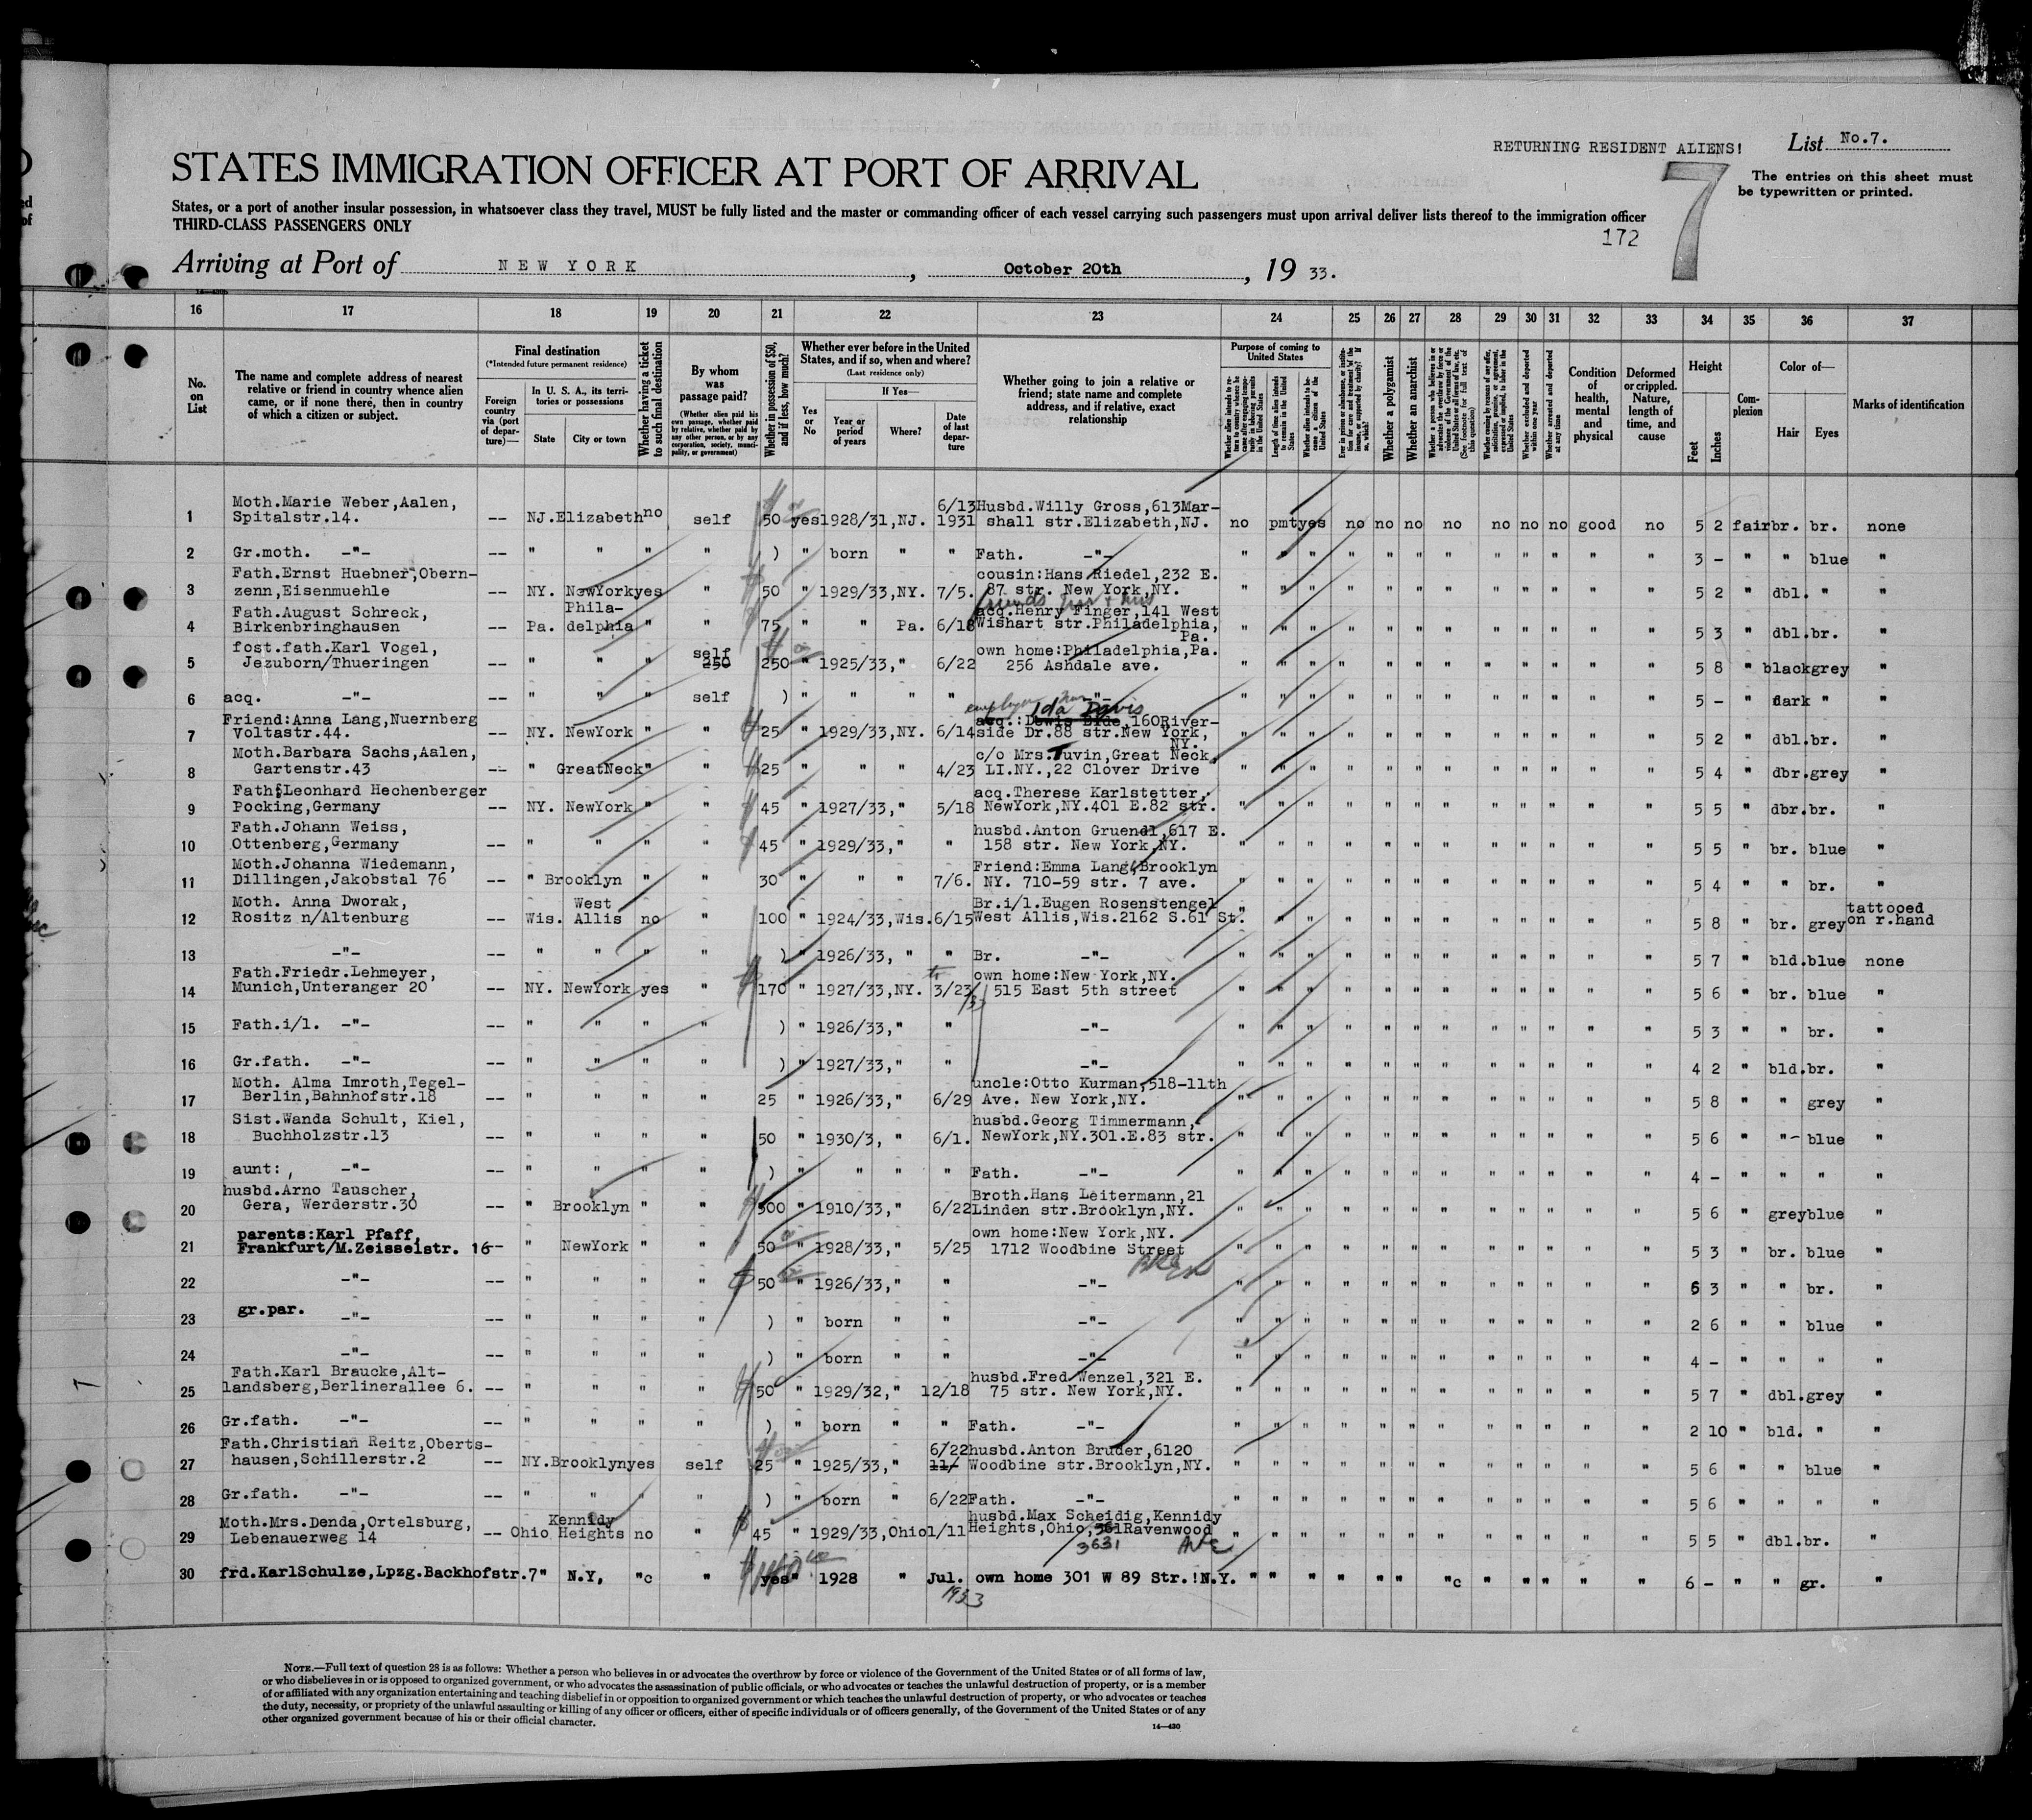 RETURNING RESIDENT ALIENS!
List No.7.
7
STATES IMMIGRATION OFFICER AT PORT OF ARRIVAL
The entries on this sheet must
be typewritten or printed.
States, or a port of another insular possession, in whatsoever class they travel, MUST be fully listed and the master or commanding officer of each vessel carrying such passengers must upon arrival deliver lists thereof to the immigration officer
THIRD-CLASS PASSENGERS ONLY
172
Arriving at Port of NEW YORK, October 20th, 19 33.
16 17 18 19 20 21 22 23 24 25 26 27 28 29 30 31 32 33 34 35 36 37
No. on List
The name and complete address of nearest relative or friend in country whence alien came, or if none there, then in country of which a citizen or subject.
Final destination
(*Intended future permanent residence)
Foreign country via (port of departure)—
In U. S. A., its territories or possessions
State City or town
Whether having a ticket to such final destination
By whom was passage paid?
(Whether alien paid his own passage, whether paid by relative, whether paid by any other person, or by any corporation, society, municipality, or government)
Whether in possession of $50, and if less, how much?
Whether ever before in the United States, and if so, when and where?
(Last residence only)
Yes or No
If Yes—
Year or period of years
Where?
Date of last departure
Whether going to join a relative or friend; state name and complete address, and if relative, exact relationship
Purpose of coming to United States
Length of time alien intends to remain in the United States
Whether alien intends to become a citizen of the United States
Whether a polygamist
Whether an anarchist
Whether excluded and deported within one year
Whether arrested and deported at any time
Condition of health, mental and physical
Deformed or crippled. Nature, length of time, and cause
Height
Feet Inches
Complexion
Color of—
Hair Eyes
Marks of identification
1 Moth.Marie Weber,Aalen, Spitalstr.14. -- NJ. Elizabeth no self 50 yes 1928/31,NJ. 6/13 1931 Husbd.Willy Gross,613Mar- shall str.Elizabeth,NJ. no pmt yes no no no no no no no good no 5 2 fair br. br. none
2 Gr.moth. -"- -- " " " " ) " born " " Father. -"- " " " " " " " " " " " " 3 - " " blue "
3 Fath.Ernst Huebner,Obern- zenn,Eisenmuehle -- NY. NewYork yes " 50 " 1929/33,NY. 7/5. cousin:Hans Riedel,232 E. 87 str. New York,NY. " " " " " " " " " " " " 5 2 " dbl. " "
4 Fath.August Schreck, Birkenbringhausen -- Pa. Phila- delphia " " 75 " " Pa. 6/18 acq.Henry Finger,141 West Wishart str.Philadelphia, Pa. " " " " " " " " " " " " 5 3 " dbl.br. "
5 fost.fath.Karl Vogel, Jezuborn/Thueringen -- " " " self 250 250 " 1925/33," 6/22 own home:Philadelphia,Pa. 256 Ashdale ave. " " " " " " " " " " " " 5 8 " black grey "
6 acq. -"- -- " " " self ) " " " " -"- " " " " " " " " " " " " 5 - " dark " "
7 Friend:Anna Lang,Nuernberg Voltastr.44. -- NY. NewYork " " 25 " 1929/33,NY. 6/14 Ida Davis acq.: ,160River- side Dr.88 str.New York, NY. " " " " " " " " " " " " 5 2 " dbl.br. "
8 Moth.Barbara Sachs,Aalen, Gartenstr.43 -- " GreatNeck " " 25 " " " 4/23 c/o Mrs.Tuvin,Great Neck, LI.NY.,22 Clover Drive " " " " " " " " " " " " 5 4 " dbr.grey "
9 Fath.Leonhard Hechenberger Pocking,Germany -- NY. NewYork " " 45 " 1927/33," 5/18 acq.Therese Karlstetter, NewYork,NY.401 E.82 str. " " " " " " " " " " " " 5 5 " dbr.br. "
10 Fath.Johann Weiss, Ottenberg,Germany -- " " " " 45 " 1929/33," " husbd.Anton Gruendl,617 E. 158 str. New York,NY. " " " " " " " " " " " " 5 5 " br. blue "
11 Moth.Johanna Wiedemann, Dillingen,Jakobstal 76 -- " Brooklyn " " 30 " " " 7/6. Friend:Emma Lang,Brooklyn NY. 710-59 str. 7 ave. " " " " " " " " " " " " 5 4 " " br. "
12 Moth. Anna Dworak, Rositz n/Altenburg -- Wis. West Allis no " 100 " 1924/33,Wis. 6/15 Br.i/l.Eugen Rosenstengel West Allis,Wis.2162 S.61 St. " " " " " " " " " " " " 5 8 " br. grey tattooed on r.hand
13 -"- -- " " " " ) " 1926/33, " " Br. -"- " " " " " " " " " " " " 5 7 " bld.blue none
14 Fath.Friedr.Lehmeyer, Munich,Unteranger 20 -- NY. NewYork yes " 170 " 1927/33,NY. 3/23/33 own home:New York,NY. 515 East 5th street " " " " " " " " " " " " 5 6 " br. blue "
15 Fath.i/l. -"- -- " " " " ) " 1926/33," " -"- " " " " " " " " " " " " 5 3 " " br. "
16 Gr.fath. -"- -- " " " " ) " 1927/33," " -"- " " " " " " " " " " " " 4 2 " bld.br. "
17 Moth. Alma Imroth,Tegel- Berlin,Bahnhofstr.18 -- " " " " 25 " 1926/33," 6/29 uncle:Otto Kurman,518-11th Ave. New York,NY. " " " " " " " " " " " " 5 8 " " grey "
18 Sist.Wanda Schult, Kiel, Buchholzstr.13 -- " " " " 50 " 1930/3, " 6/1. husbd.Georg Timmermann, NewYork,NY.301.E.83 str. " " " " " " " " " " " " 5 6 " " blue "
19 aunt:, -"- -- " " " " ) " " " " Fath. -"- " " " " " " " " " " " " 4 - " " " "
20 husbd.Arno Tauscher, Gera, Werderstr.30 -- " Brooklyn " " 300 " 1910/33," 6/22 Broth.Hans Leitermann,21 Linden str.Brooklyn,NY. " " " " " " " " " " " " 5 6 " grey blue "
21 parents:Karl Pfaff, Frankfurt/M.Zeisselstr. 16 -- " NewYork " " 50 " 1928/33," 5/25 own home:New York,NY. 1712 Woodbine Street " " " " " " " " " " " " 5 3 " br. blue "
22 -"- -- " " " " 50 " 1926/33," " -"- " " " " " " " " " " " " 6 3 " " br. "
23 gr.par. -"- -- " " " " ) " born " " -"- " " " " " " " " " " " " 2 6 " " blue "
24 -"- -- " " " " ) " born " " -"- " " " " " " " " " " " " 4 - " " " "
25 Fath.Karl Braucke,Alt- landsberg,Berlinerallee 6. -- " " " " 50 " 1929/32," 12/18 husbd.Fred Wenzel,321 E. 75 str. New York,NY. " " " " " " " " " " " " 5 7 " dbl.grey "
26 Gr.fath. -"- -- " " " " ) " born " " Fath. -"- " " " " " " " " " " " " 2 10 " bld. " "
27 Fath.Christian Reitz,Oberts- hausen,Schillerstr.2 -- NY. Brooklyn yes self 25 " 1925/33," 6/22 11/ husbd.Anton Bruder,6120 Woodbine str.Brooklyn,NY. " " " " " " " " " " " " 5 6 " " blue "
28 Gr.fath. -"- -- " " " " ) " born " 6/22 Fath. -"- " " " " " " " " " " " " 5 6 " " " "
29 Moth.Mrs.Denda,Ortelsburg, Lebenauerweg 14 -- Ohio Kennidy Heights no " 45 " 1929/33,Ohio 1/11 husbd.Max Scheidig,Kennidy Heights,Ohio,361 Ravenwood 3631 Ave " " " " " " " " " " " " 5 5 " dbl.br. "
30 frd.KarlSchulze,Lpzg.Backhofstr.7 " N.Y, "c " yes " 1928 " Jul. 1933 own home 301 W 89 Str.!N.Y. " " " " " " "c " " " " " 6 - " " gr. "
NOTE.—Full text of question 28 is as follows: Whether a person who believes in or advocates the overthrow by force or violence of the Government of the United States or of all forms of law,
or who disbelieves in or is opposed to organized government, or who advocates the assassination of public officials, or who advocates or teaches the unlawful destruction of property, or is a member
of or affiliated with any organization entertaining and teaching disbelief in or opposition to organized government or which teaches the unlawful destruction of property, or who advocates or teaches
the duty, necessity, or propriety of the unlawful assaulting or killing of any officer or officers, either of specific individuals or of officers generally, of the Government of the United States or of any
other organized government because of his or their official character.
14—430